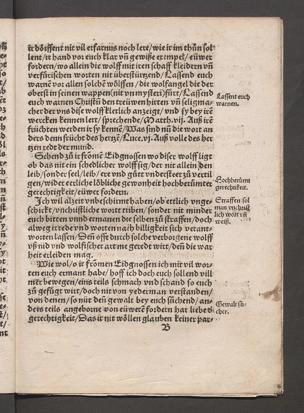 it böißent nit vil erfarnis noch lert / wie ir im thůn sol
lent / ir hand vor euch klar vñ gewiße exempel / eüwer
fordern / wo allein die wolff mit iren schaff kleidern vñ
verfürischen worten nit überstürzend / Lassend euch
warnẽ vor allen solchẽ wölffen / die wolfangel die der
oberst in seinem wappen mysteri fürt / Lassend
euch warnen Christũ den treüwen hirten vñ seligma-
cher der vns die wolff erkennen anzeigt / vnd sy bey irẽ
werckẽ kennen lert / sprechende / Math. vij. Auß irẽ
früchten werden ir sy kennẽ / Was sind nũ die wort an
ders denn frücht des hertzẽ / Luce. vj. Auß volle des her
zen redt der mund.
Sehend zů ir fromẽ Eidgnossen wo diser wolff ligt
ob das nit ein schedlicher wolff sig / der nit allein den
leib / sonder seel / leib / eer vnd gůt vnderstect zů vertil
gẽ / wider erliche löbliche gewonheit hochberümter
gerechtigkeit / eüwer fordern.
Ich wil alzeit vnbeschimt haben / ob ettlich vnge-
schickt / vnchristliche wort treibt / sonder nit minder
auch bitten vnd ermanen der selben zů straffen / doch
alweg ir rede vnd worten nach billigkeit sich verant-
worten lassen / Deñ offt durch solche verborgne wolff
vß nid vnd wolfischer art me geredt wirt / den die war
heit erleiden mag.
Wie wol / o ir frõmen Eidgnossen ich mit vil wor-
ten euch ermant habe / hoff ich doch euch sollend vill
mer bewegen / eins teils schmach vnd schand so euch
zů gefügt wirt / doch nit von yederman verstanden /
von denen / so nüt deñ gewalt bey euch süchend / an-
ders teils angeborne von eüwerẽ fordern har liebe ð
gerechtigkeit / Das ir nit wöllen glauben keiner par-
B
Lassent euch
warnen.
Hochberümt
gerechtikeit.
Straffen sol
man vnchrist
lich wort vñ
weiß.
Gewalt sü-
cher.